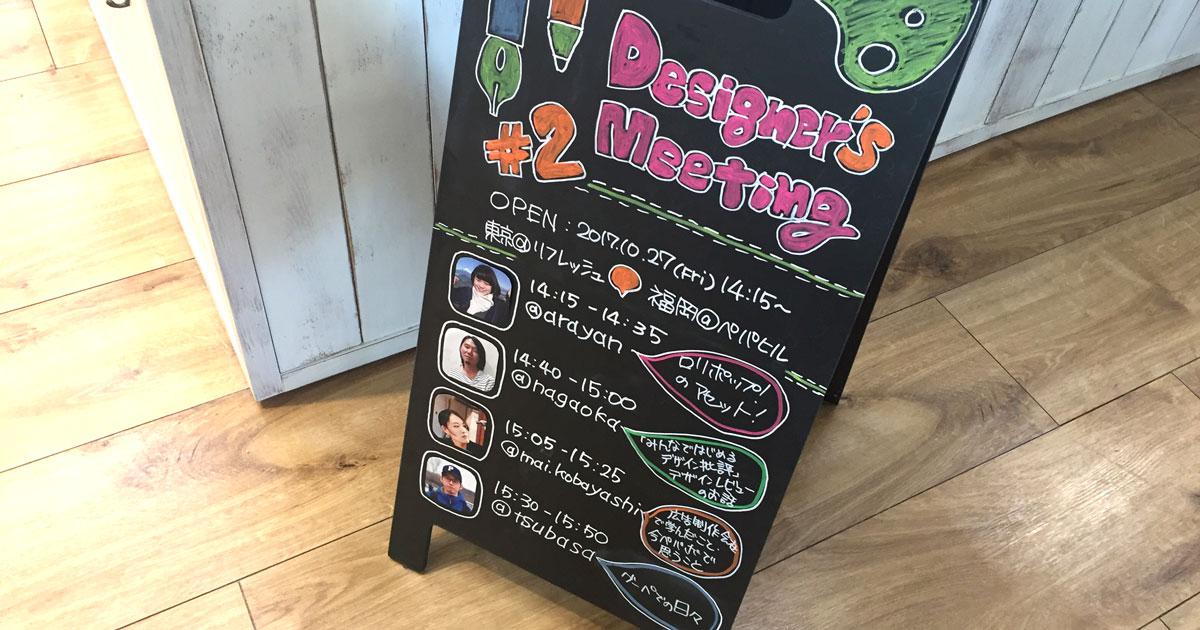 Designer's
#2 Meeting
OPEN : 2017.10.27(Fri) 14:15〜
東京@リフレッシュ 福岡@ペパビル
14:15 - 14:35
@arayan
ロリポップ!
のアセット!
14:40 - 15:00
@nagaoka
「みんなではじめる
デザイン批評」
デザインレビュー
のお話
15:05 - 15:25
@mai.kobayashi
広告制作会社
で学んだこと、
今ペパボで
思うこと
15:30 - 15:50
@tsubasa
グーペでの日々